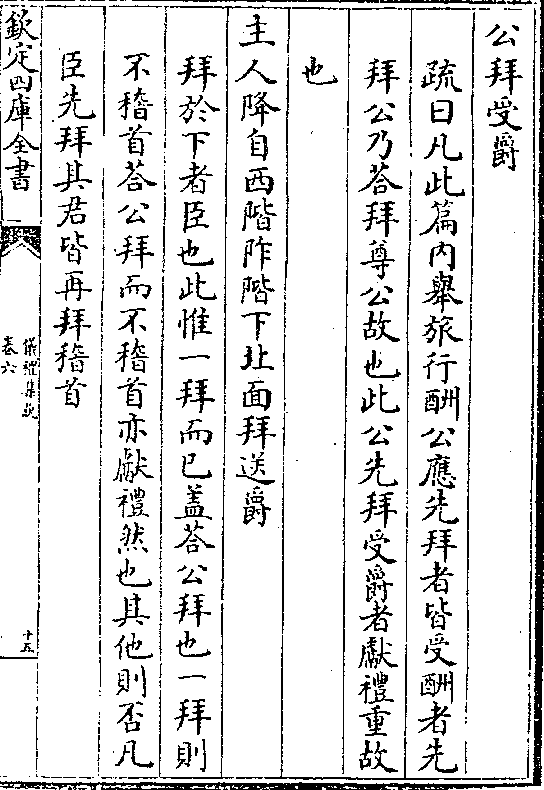 公拜受爵
疏曰凡此篇内舉旅行酬公應先拜者皆受酬者先
拜公乃荅拜尊公故也此公先拜受爵者獻禮重故
也
主人降自西階阼階下北面拜送爵
拜於下者臣也此惟一拜而已蓋荅公拜也一拜則
不稽首荅公拜而不稽首亦獻禮然也其他則否凡
臣先拜其君皆再拜稽首
欽定四庫全書
儀禮集說
卷六
十五